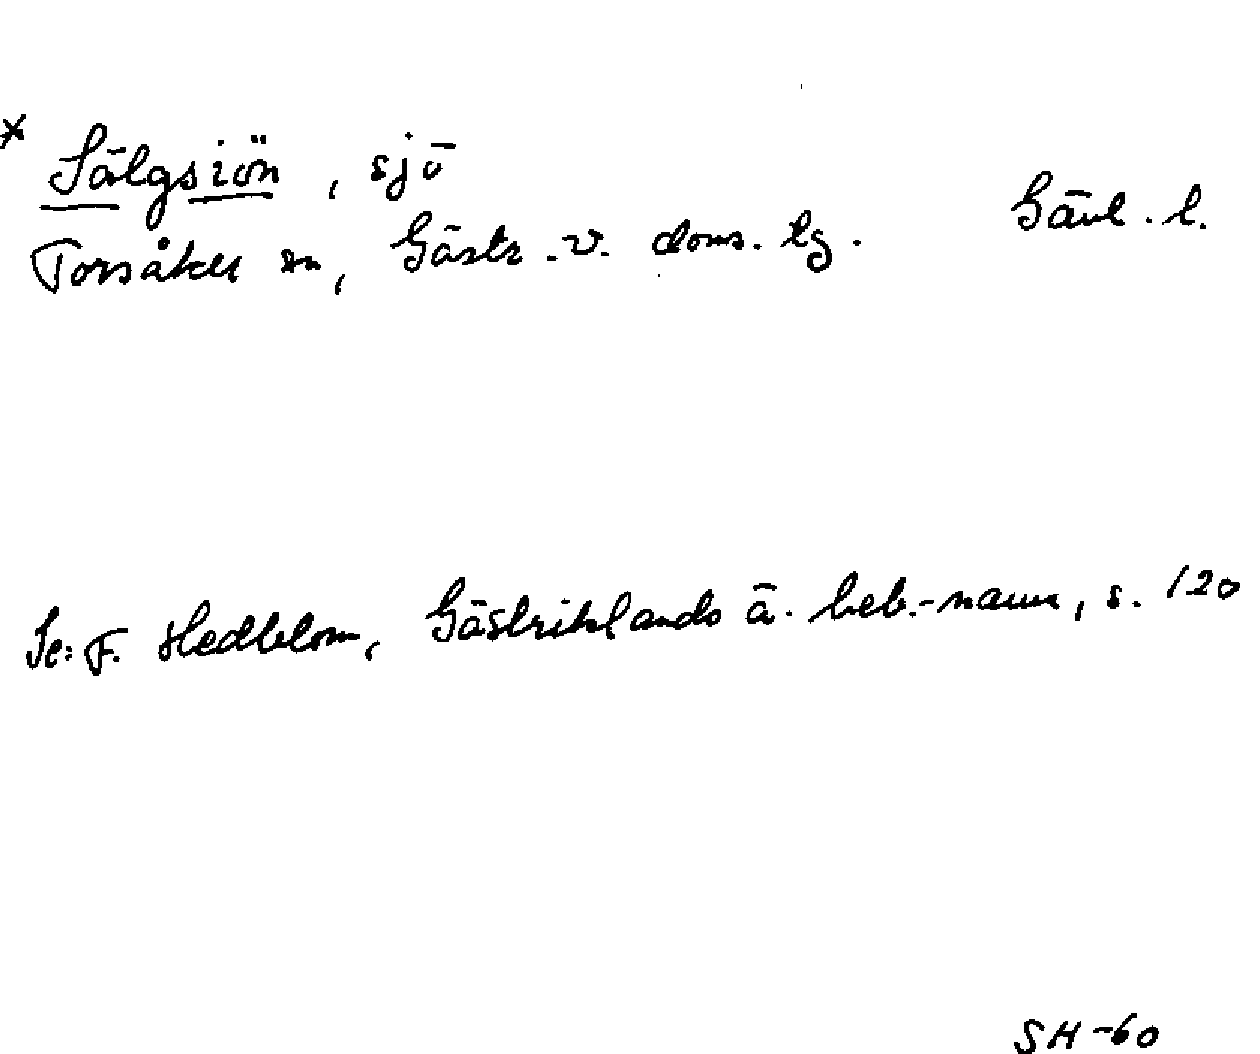 * Sälgsiön, sjö
Gävl. l.
Torsåkers sn, Gästr. v. doms. lg.
Se: F. Hedblom, Gästriklands ä. beb.-namn, s. 120
SH-60